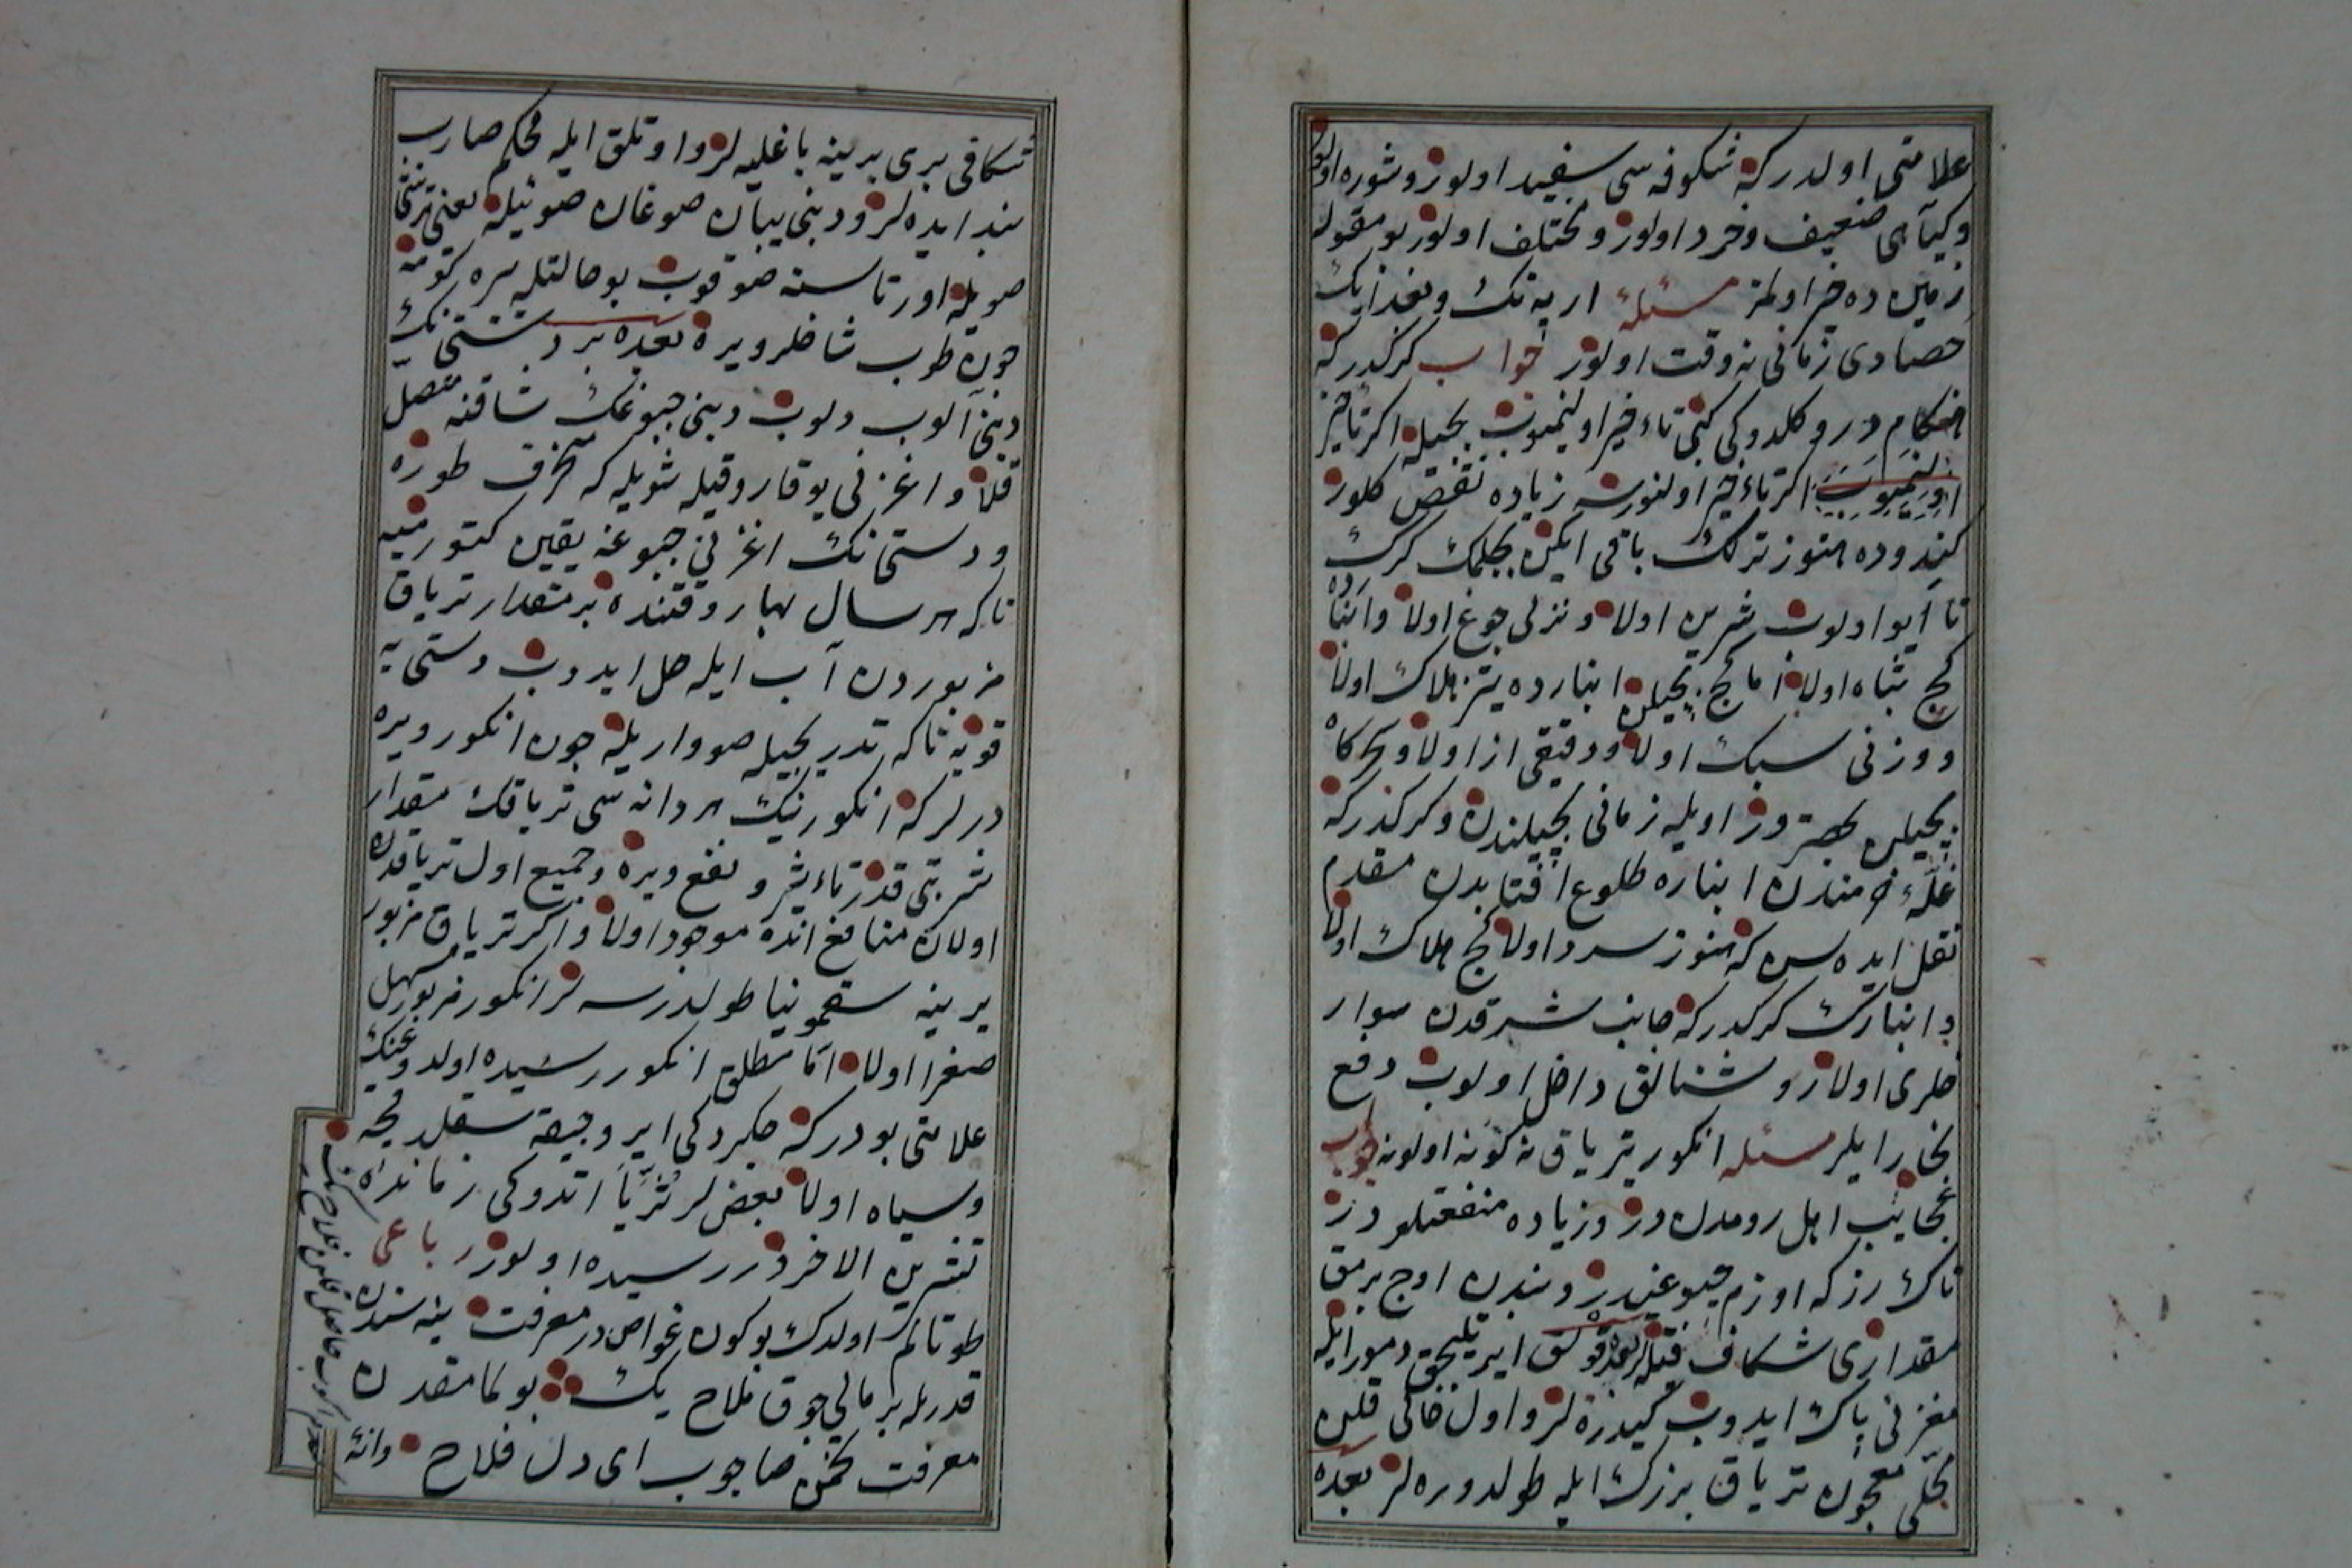 علامتی اولدر که شکوفه سی سفید اولور و شوره اولور
و کیاهی ضعیف و خرد اولور و مختلف اولور بو مقوله
زمین ده خیر اولمز مسئله اریه نک و بغداینک
حصادی زمانی نه وقت اولور جواب کرکدر که
هنکام درو کلدوکی کبی تاءخیر اولنمیوب بچیله اکر تاءخیر
اولنمیوب اکر تاءخیر اولنورسه زیاده نقص کلور
کندوده هنوز ترلک باقی ایکن بچلمک کرک
تا ایو اولوب شیرین اولا و نزلی چوغ اولا و انبارده
کج تباه اولا اما کج بچیلن انبارده تیز هلاک اولا
و وزنی سبک اولا و دقیقی از اولا و سحرکاه
بچیلن بهتر در اویله زمانی بچیلندن و کرکدر که
غله ء خرمندن انباره طلوع افتابدن مقدم
نقل ایده سن که هنوز سرد اولا کج هلاک اولا
و انبارک کرکدر که جانب شرقدن سوار
خلری اولا روشنالق داخل اولوب دفع
بخار ایلر مسئله انکور تریاق نه کونه اولور جواب
عجایب اهل رومدن در و زیاده منفعتلو در
تاک رز که اوزم چبوغیدر دبندن اوج برمق
مقداری شکاف قیله لر بعده قولق ایر تیلیجق دمور ایله
مغزنی پاک ایدوب کیدره لر و اول خالی قلن
محلی معجون تریاق بزرک ایله طولدوره لر بعده
شکافی بری برینه باغلیه لر و اوتلق ایله محکم صارب
بند ایده لر و دبنی یبان صوغان صوییله یعنی
صویله اورتاسنه صوقوب بو حالتله یره کومه
چون طوب شاخلر ویره بعده بر دستی نک
دبنی الوب دلوب دبنی چبوغک ساقنه متصل
قلا و اغزنی یوقارو قیله شویله که منحرف طوره
و دستی نک اغزنی چبوغه یقین کتورمیه
تا که هر سال بهار وقتنده بر مقدار تریاق
مزبوردن آب ایله حل ایدوب دستی یه
قویه تا که تدریجیله صو واریله چون انکور ویره
درلر که انکورینک هر دانه سی تریاقک مقدار
شربتی قدر تاءثیر و نفع ویره و جمیع اول تریاقده
اولان منافع انده موجود اولا و اکر تریاق مزبور
یرینه سقمونیا طولدرسه لر انکور مزبور مسهل
صفرا اولا اما مطلق انکور رسیده اولدوغنک
علامتی بودر که چکردکی ایر و جیقه سقلدیجه
و سیاه اولا بعضلر ثریا اتدوکی زمانده
تشرین الاخردر رسیده اولور رباعی
طوتالم اولدک بوکون غواص در معرفت ینه سندن
قدریله بر مالی چوق فلاح یک بو کما مقدن
معرفت تخمن صاچوب ای دل فلاح دانه